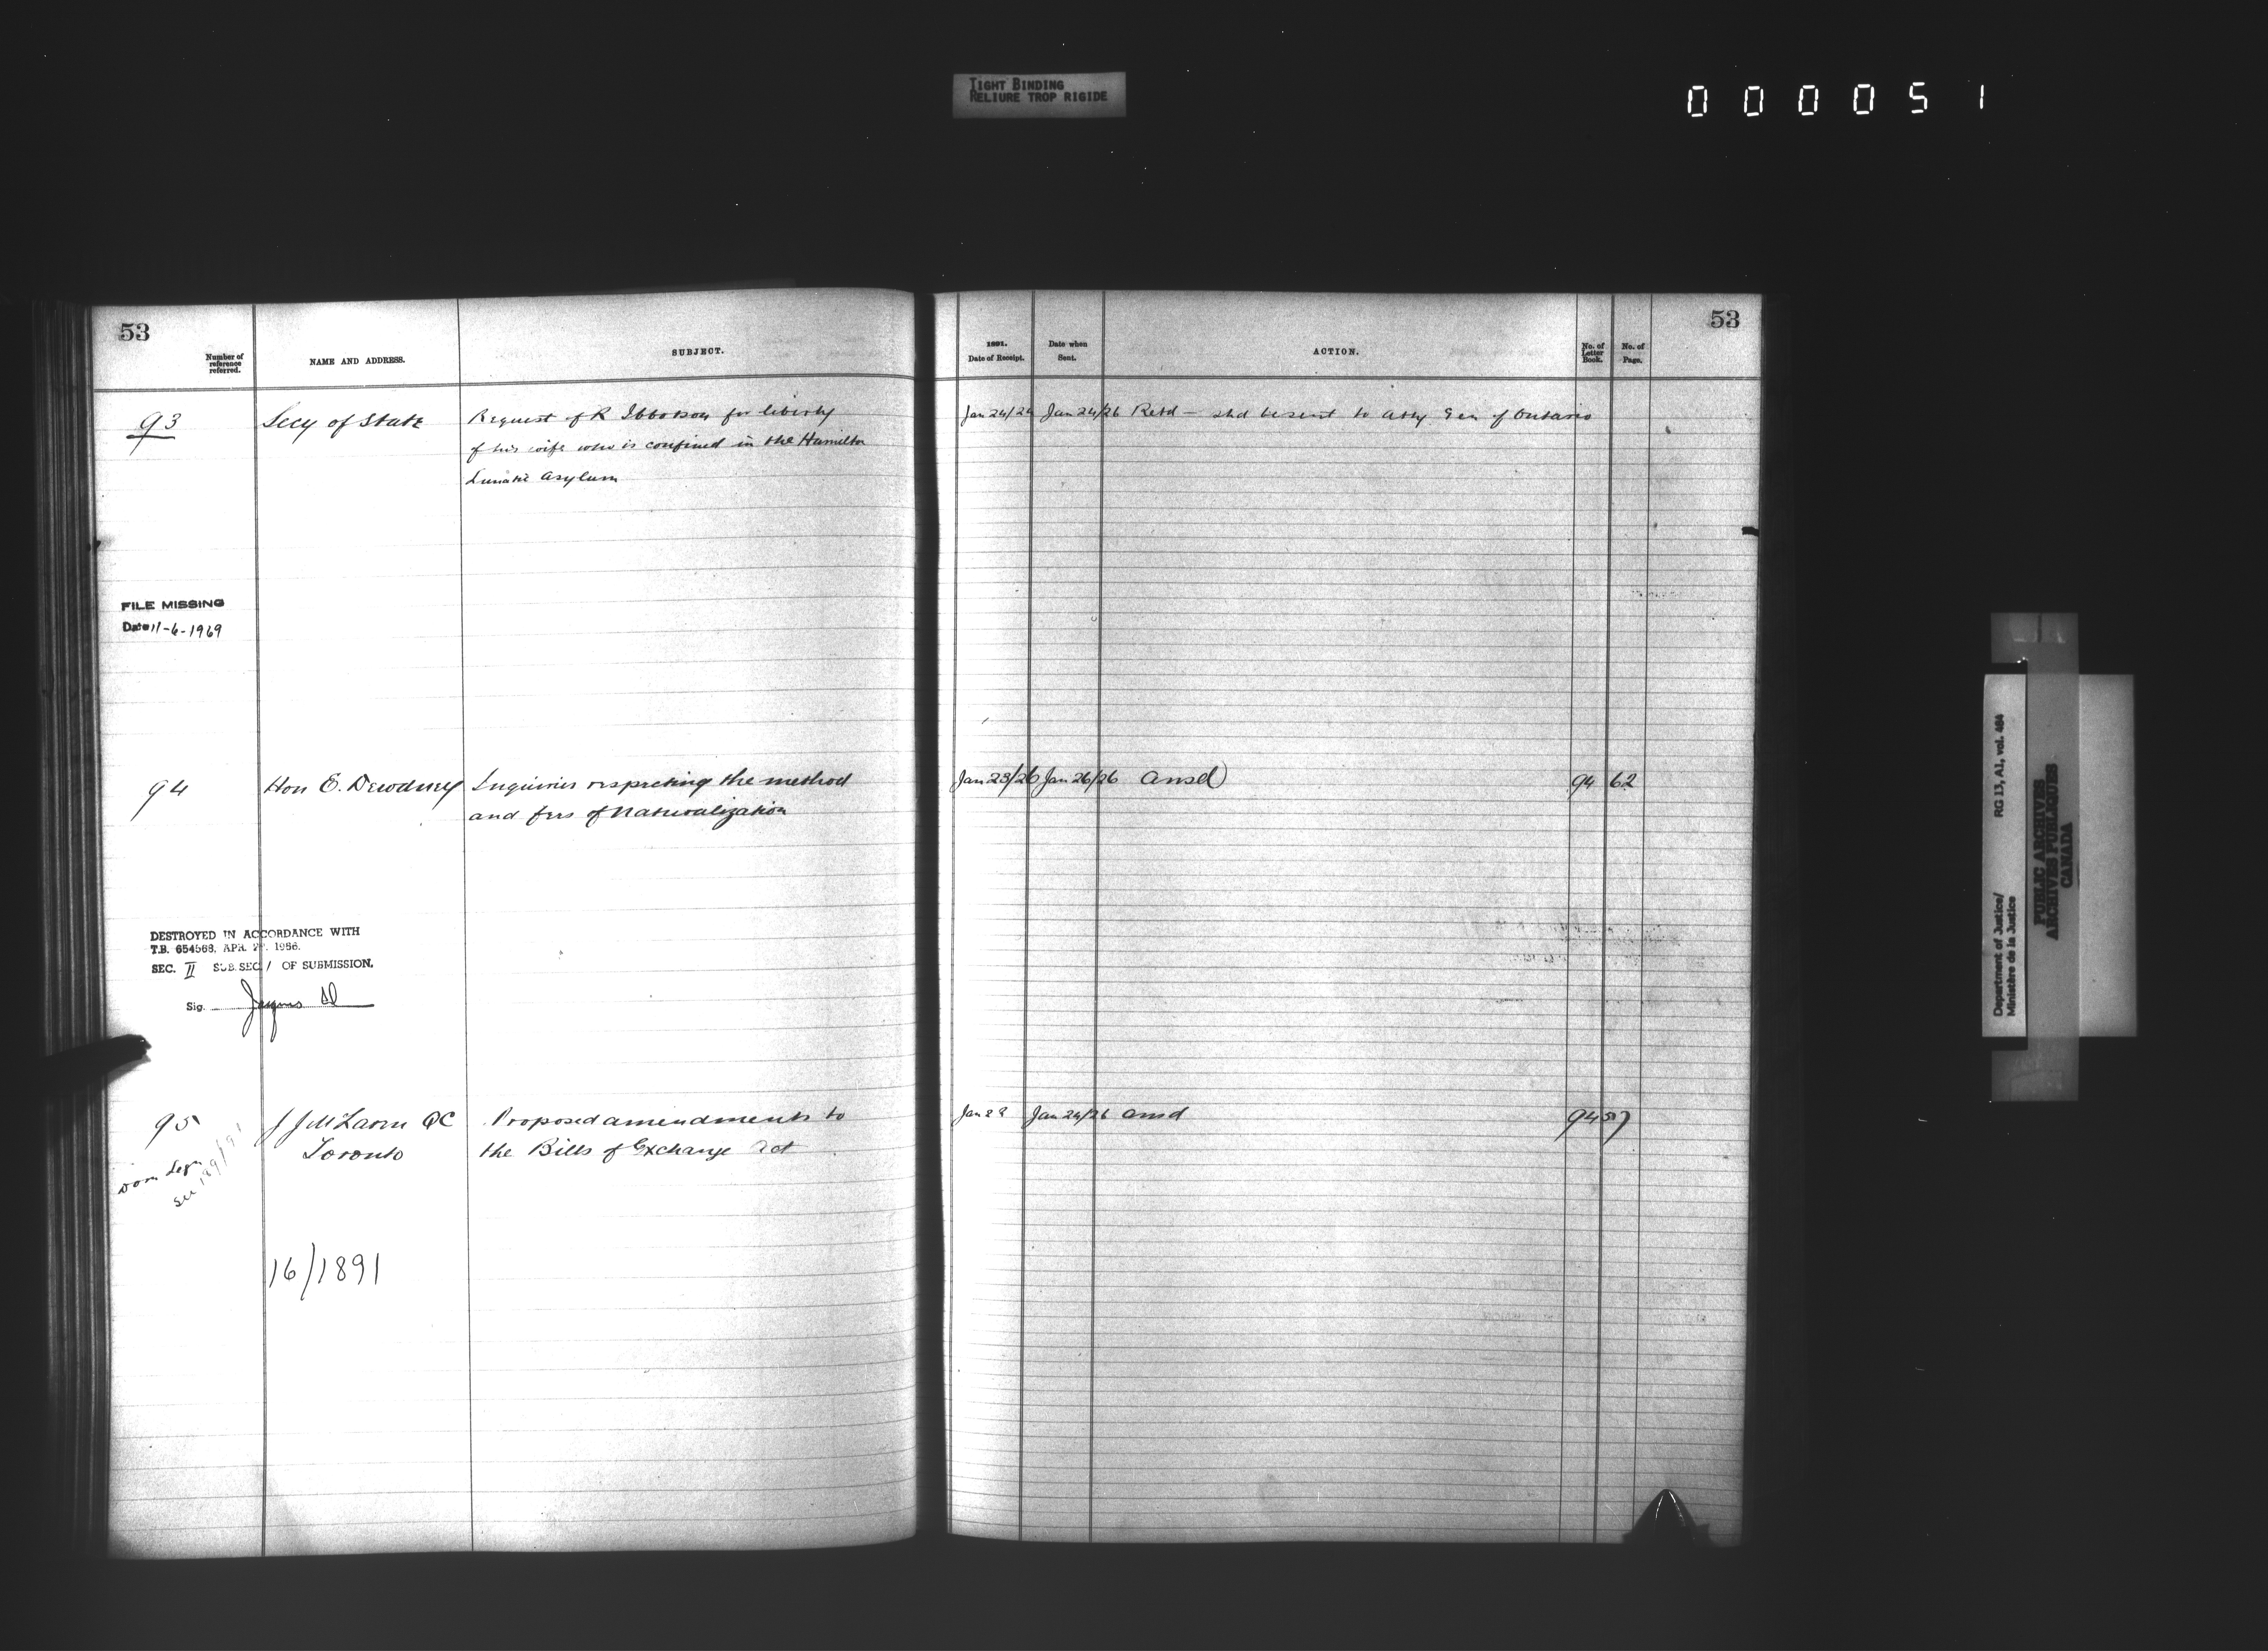 TIGHT BINDING
RELIURE TROP RIGIDE
000051
53
Number of
reference
referred.
NAME AND ADDRESS.
SUBJECT.
93
Secy of State
Request of R Ibbotson for liberty
of his wife who is confined in the Hamilton
Lunatic Asylum
FILE MISSING
Date 11-6-1969
94
Hon E. Dewdney
Inquiries respecting the method
and fees of Naturalization
DESTROYED IN ACCORDANCE WITH
T.B. 654568, APR. 1966.
SEC. II SUB.SEC. 1 OF SUBMISSION.
Sig.
95
J J McLaren QC
Toronto
Proposed amendments to
the Bills of Exchange Act
Dom Legn
See 189/91
16/1891
53
1891.
Date of Receipt.
Date when
Sent.
ACTION.
No. of
Letter
Book.
No. of
Page.
Jan 24/24 Jan 24/26 Retd — shd be sent to Atty Gen of Ontario
Jan 23/26 Jan 26/26 ansd 94 62
Jan 23 Jan 24/26 ansd 94 57
Department of Justice/
Ministère de la Justice
RG 13, A1, vol. 484
PUBLIC ARCHIVES
ARCHIVES PUBLIQUES
CANADA